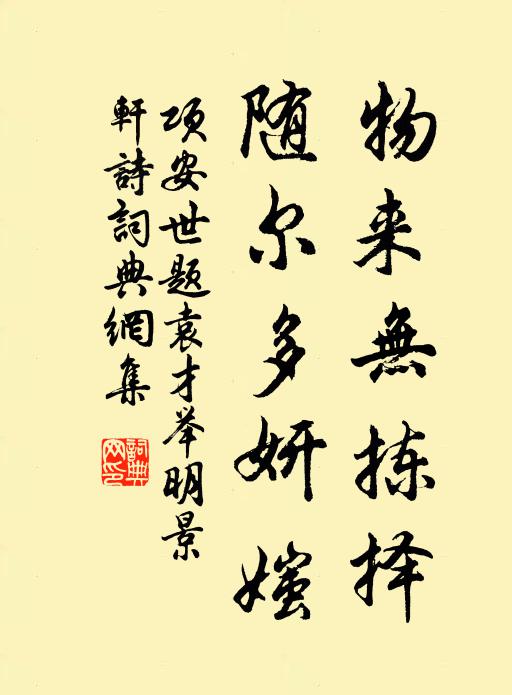 物来無拣择
随尔多妍媸
项安世题袁才举明景
軒詩詞典網集
詞典
网印